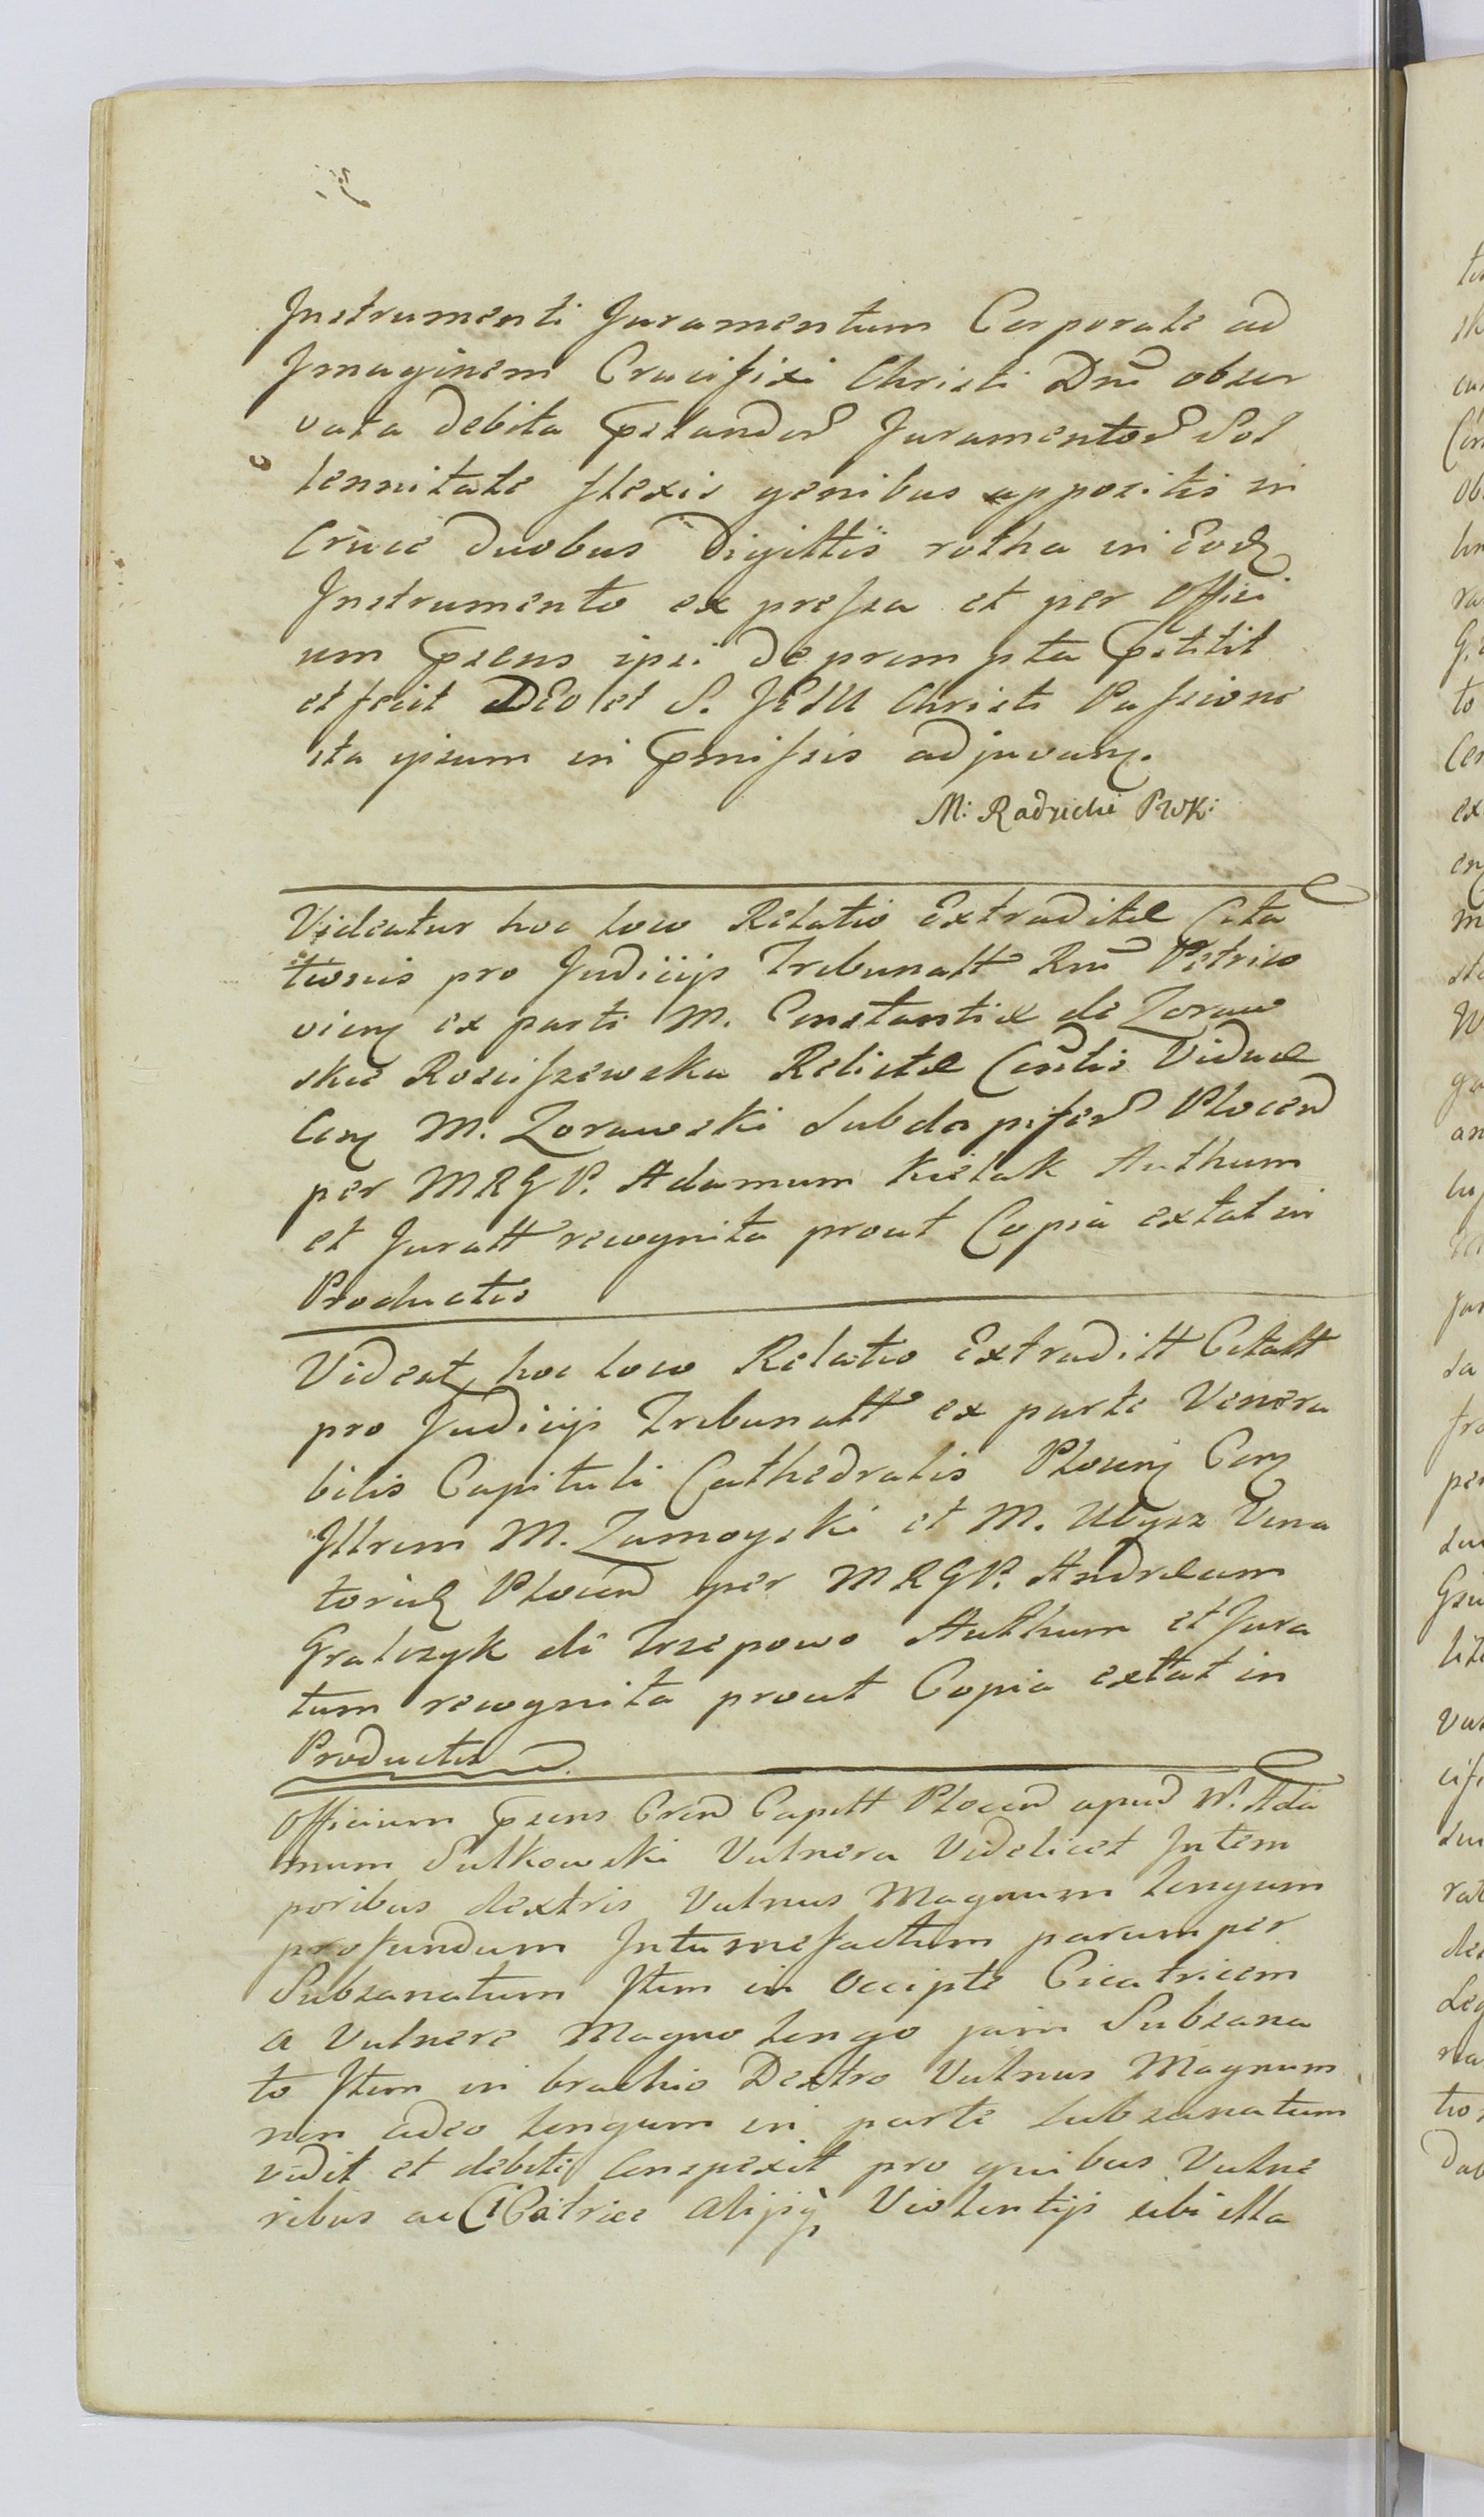 Instrumenti Juramentum Corporale ad
Imaginem Crucifixi Christi Dni obser
vata debita Pstandor Juramentor Sol
lennitate flexis genibus appositis in
Cruce duobus Digittis rotha in Eod
Instrumento expressa et per Offici
um Psens ipsi deprompta Pstitit
et fecit DEO et S. JESU Christi Passione
ita ipsum in Pmissis adjuvan.
M: Radzichi
Videatur hoc loco Relatio Extraditæ Cita
tionis pro Judicijs Tribunatt Rni Petrico
vien ex parte M. Constantiæ de Zoraw
skie Rosciszewska Relictæ Viduæ
Con M. Zorawski Subdapifer Plocen
per MRGP. Adamum Kielak Authum
et Juratt recognita prout Copia extat in
Productis
Videat hoc loco Relatio Extraditt Citatt
pro Judicijs Tribunatt ex parte Venera
bilis Capituli Cathedralis Plocen Con
Illrem M. Zamoyski et M. Ubysz Vena
torid Plocen per MRGP. Andræam
Gralczyk de Trzepowo Authum et Jura
tum recognita prout Copia extat in
Productis
Officium Psens Cren Capitt Plocen apud N. Ada
mum Sulkowski Vulnera Videlicet In tem
poribus dextris Vulnus Magnum longum
profundum Intumefactum parumper
Subsanatum Item in Occipite Cicatricem
a Vulnere Magno longo jam Subsana
to Item in brachio Dextro Vulnus Magnum
non adeo longum in parte subsanatum
vidit et debite conspexit pro quibus Vulne
ribus ac CiCatrice alijsq Violentijs sibi illa